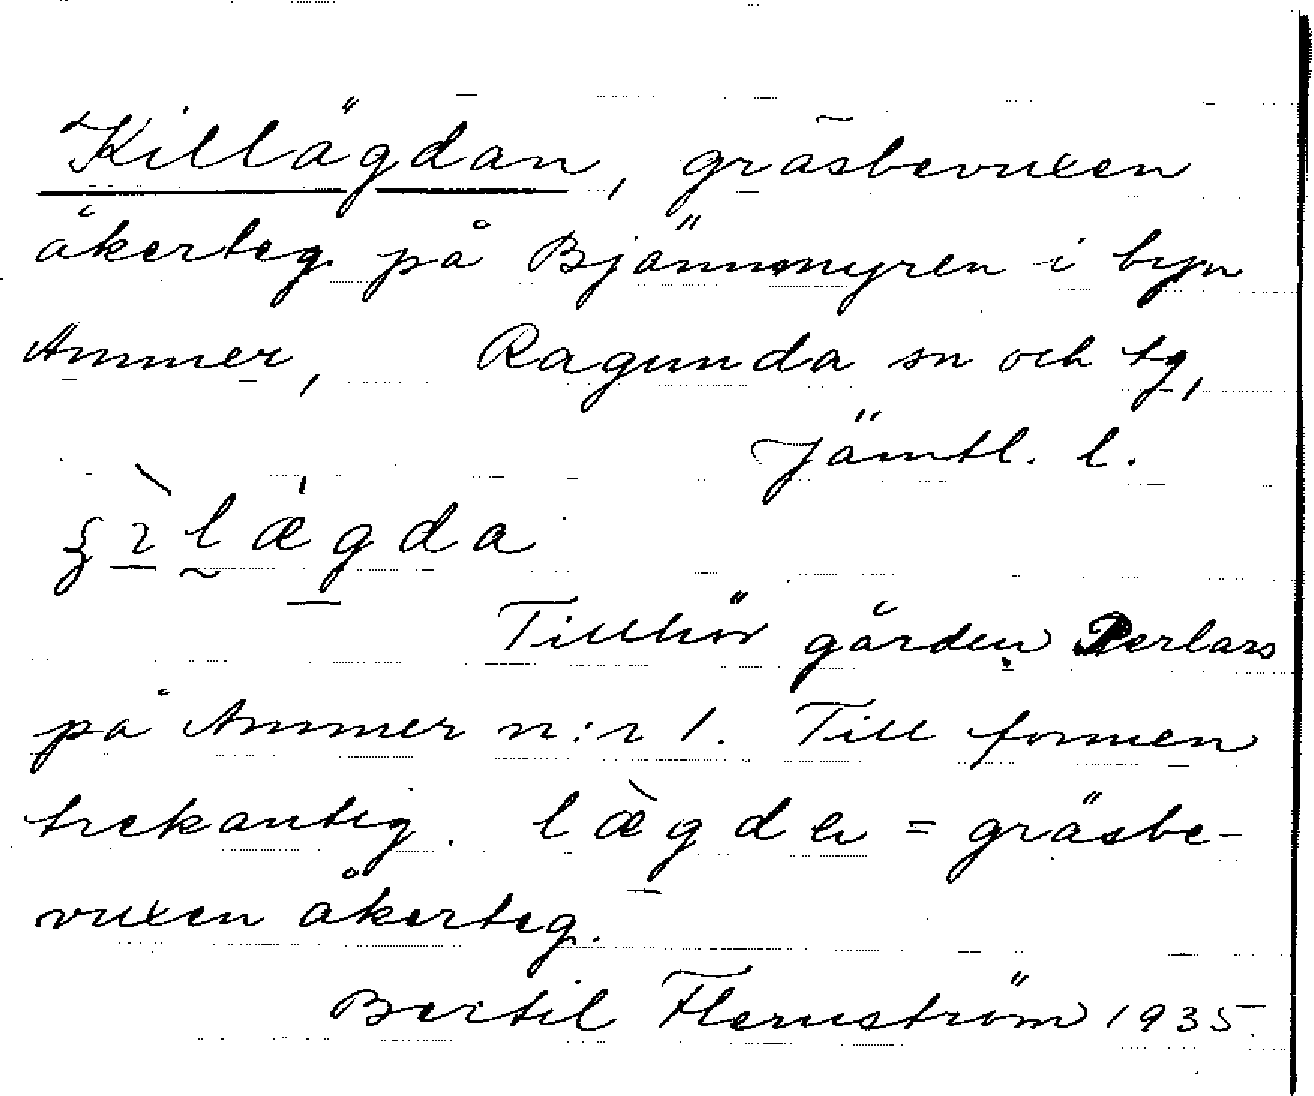 Killägdan, gräsbevuxen
åkerteg på Bjännmyren i byn
Ammer, Ragunda sn och tg,
Jämtl. l.
lægda
Tillhör gården Perlars
på Ammer n:r 1. Till formen
trekantig. = gräsbe-
vuxen åkerteg.
Bertil Flemström 1935.